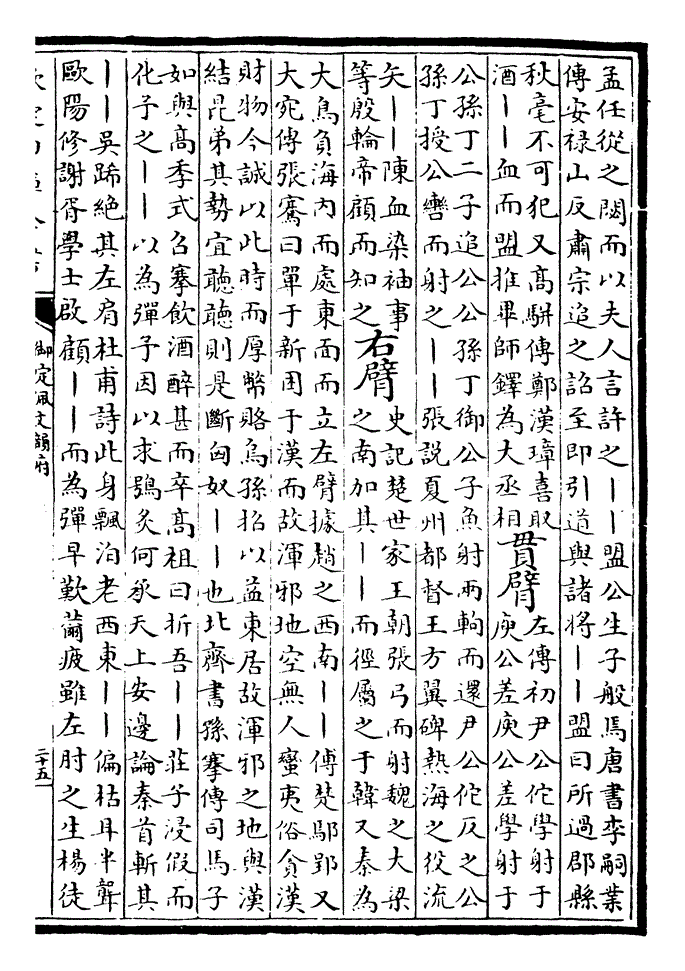 孟任從之閟而以夫人言許之丨丨盟公生子般馬唐書李嗣業
傳安禄山反肅宗追之詔至即引道與諸將丨丨盟曰所過郡縣
秋毫不可犯又髙駢傳鄭漢璋喜取
酒丨丨血而盟推畢師鐸為大丞相
貫臂
左傳初尹公佗學射于
庾公差庾公差學射于
公孫丁二子追公公孫丁御公子魚射兩軥而還尹公佗反之公
孫丁授公轡而射之丨丨張説夏州都督王方翼碑熱海之役流
矢丨丨陳血染袖事
等殷輪帝顧而知之
右臂
史記楚世家王朝張弓而射魏之大梁
之南加其丨丨而徑屬之于韓又秦為
大鳥負海内而處東面而立左臂據趙之西南丨丨傅楚鄢郢又
大宛傳張騫曰單于新困于漢而故渾邪地空無人蠻夷俗貪漢
財物今誠以此時而厚幣賂烏孫招以益東居故渾邪之地與漢
結昆弟其勢宜聽聽則是斷匈奴丨丨也北齊書孫搴傳司馬子
如與髙季式召搴飲酒醉甚而卒髙祖曰折吾丨丨莊子浸假而
化子之丨丨以為彈予因以求鴞炙何承天上安邊論秦首斬其
丨丨吳蹄絶其左肩杜甫詩此身飄泊老西東丨丨偏枯耳半聾
歐陽修謝胥學士啟顧丨丨而為彈早歎薾疲雖左肘之生楊徒
御定佩文韻府
二十五